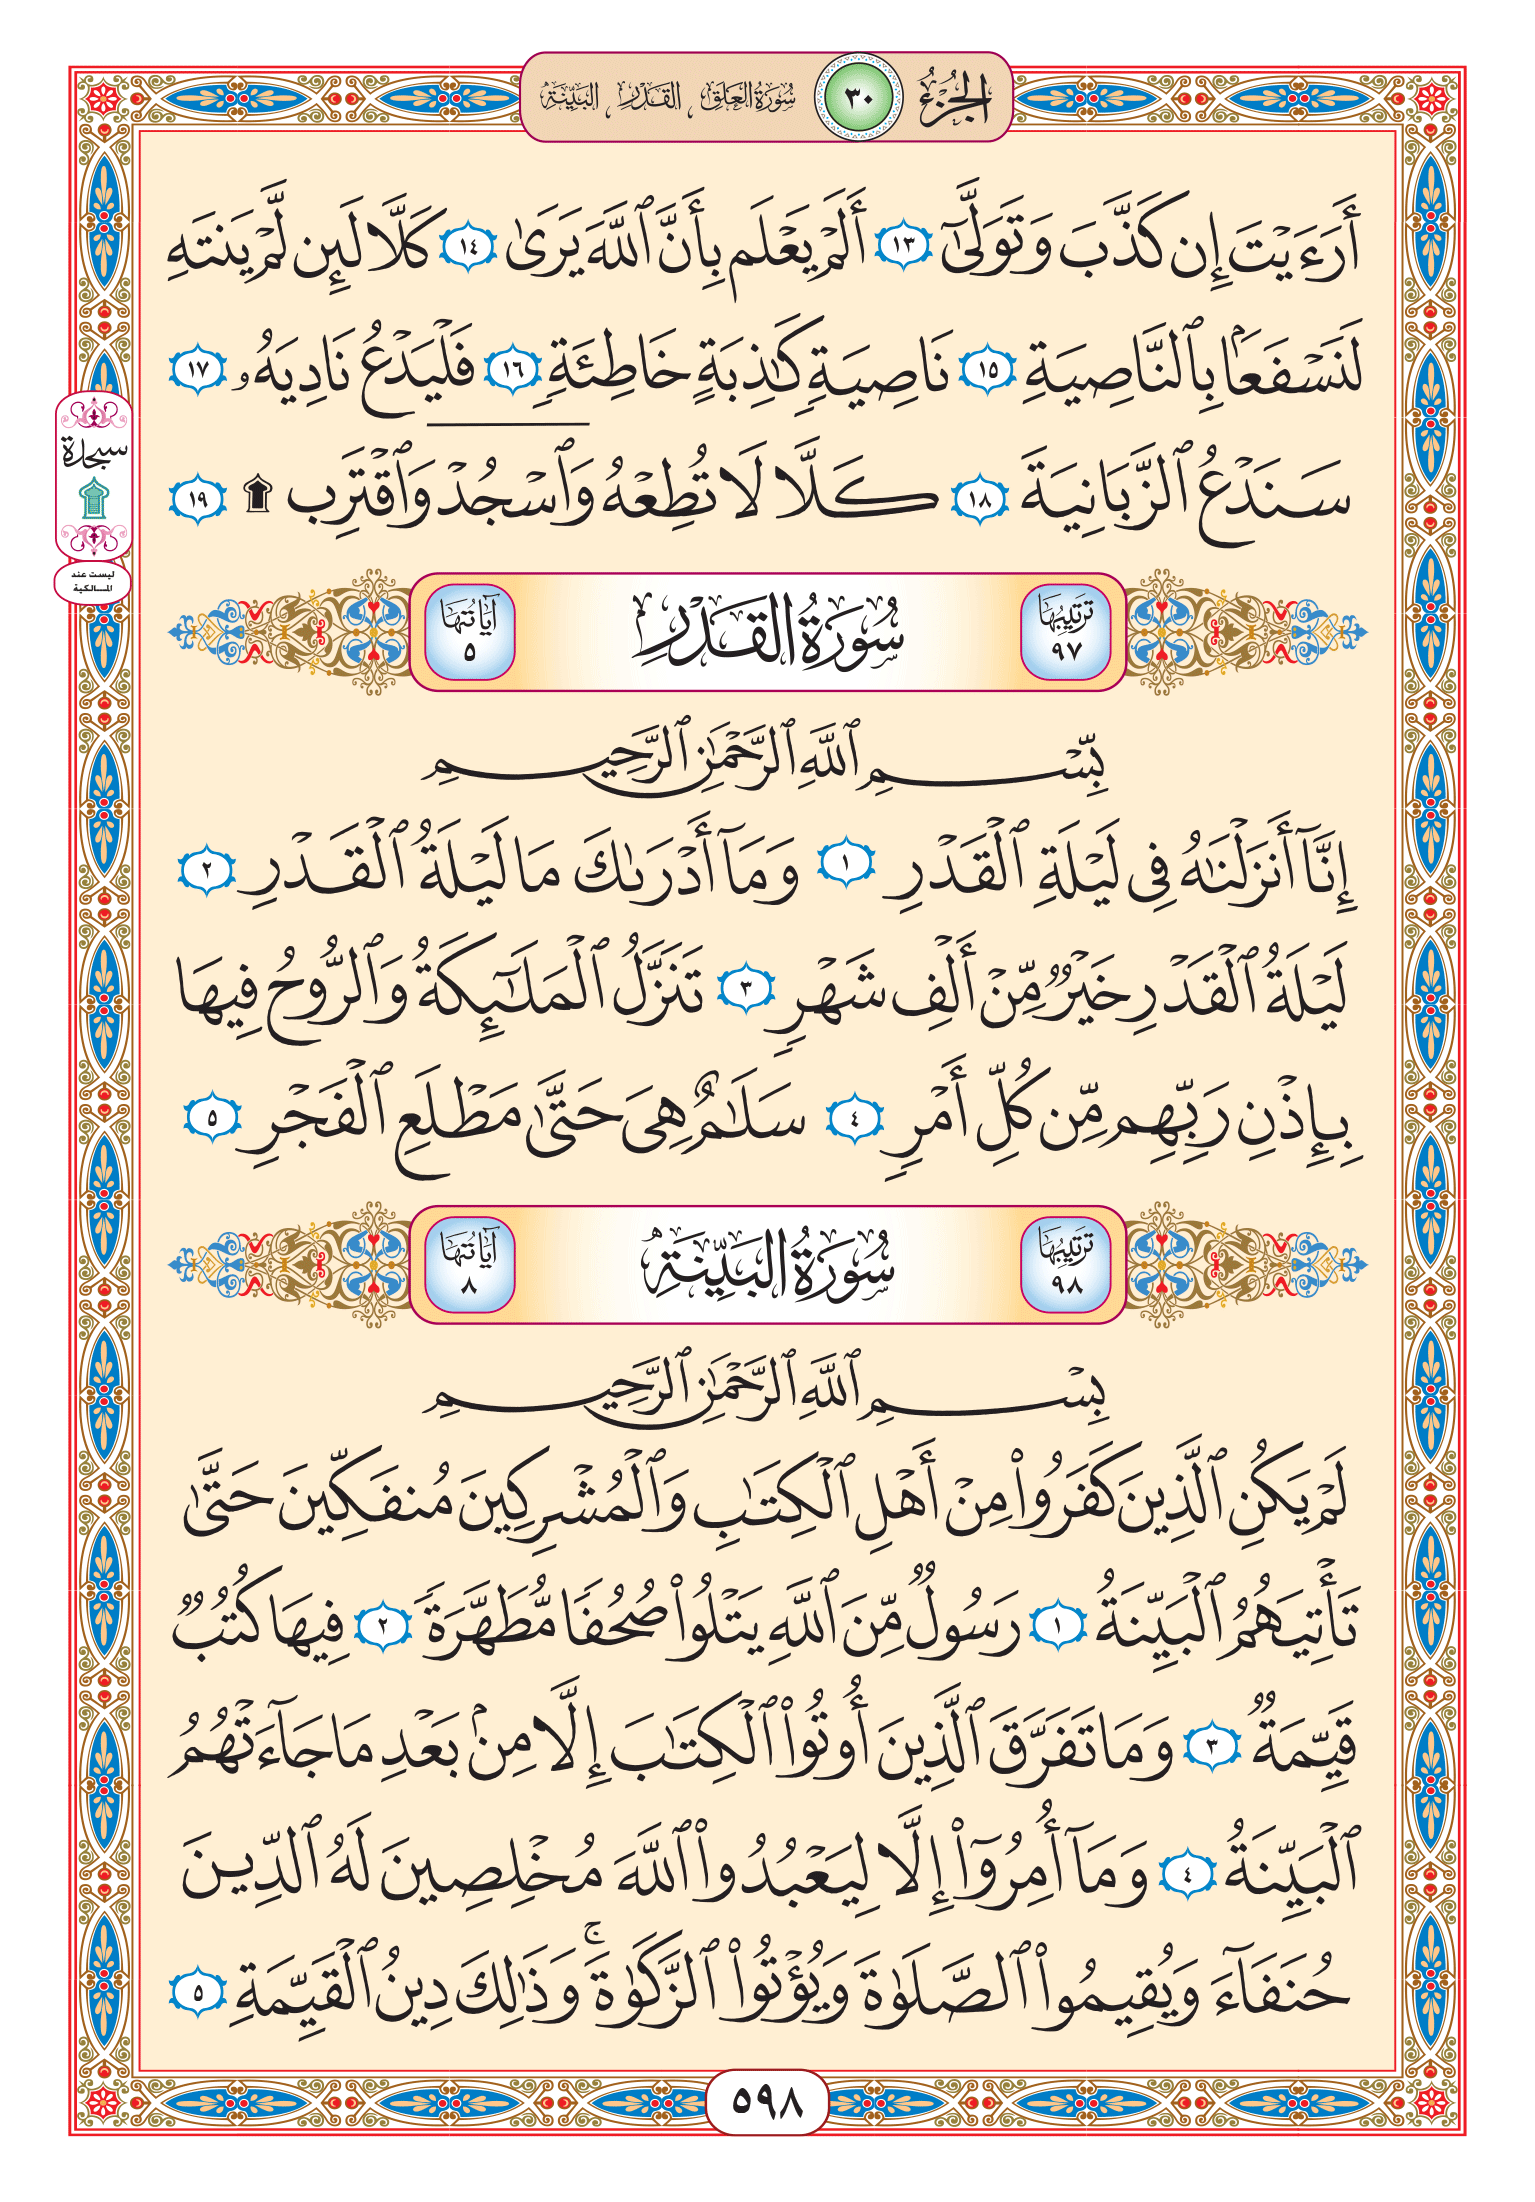 الجزء ٣٠ سورة العلق ، القدر ، البينة
أَرَءَيْتَ إِن كَذَّبَ وَتَوَلَّىٰٓ ١٣ أَلَمْ يَعْلَم بِأَنَّ ٱللَّهَ يَرَىٰ ١٤ كَلَّا لَئِن لَّمْ يَنتَهِ
لَنَسْفَعًۢا بِٱلنَّاصِيَةِ ١٥ نَاصِيَةٍ كَٰذِبَةٍ خَاطِئَةٍ ١٦ فَلْيَدْعُ نَادِيَهُۥ ١٧
سَنَدْعُ ٱلزَّبَانِيَةَ ١٨ كَلَّا لَا تُطِعْهُ وَٱسْجُدْ وَٱقْتَرِب ۩ ١٩
سجدة
ليست عند
المالكية
ترتيبها ٩٧ سُورَةُ القَدْرِ آياتها ٥
بِّسْمِ ٱللَّهِ ٱلرَّحْمَٰنِ ٱلرَّحِيمِ
إِنَّآ أَنزَلْنَٰهُ فِى لَيْلَةِ ٱلْقَدْرِ ١ وَمَآ أَدْرَىٰكَ مَا لَيْلَةُ ٱلْقَدْرِ ٢
لَيْلَةُ ٱلْقَدْرِ خَيْرٌ مِّنْ أَلْفِ شَهْرٍ ٣ تَنَزَّلُ ٱلْمَلَٰٓئِكَةُ وَٱلرُّوحُ فِيهَا
بِإِذْنِ رَبِّهِم مِّن كُلِّ أَمْرٍ ٤ سَلَٰمٌ هِىَ حَتَّىٰ مَطْلَعِ ٱلْفَجْرِ ٥
ترتيبها ٩٨ سُورَةُ البَيِّنَةِ آياتها ٨
بِسْمِ ٱللَّهِ ٱلرَّحْمَٰنِ ٱلرَّحِيمِ
لَمْ يَكُنِ ٱلَّذِينَ كَفَرُوا۟ مِنْ أَهْلِ ٱلْكِتَٰبِ وَٱلْمُشْرِكِينَ مُنفَكِّينَ حَتَّىٰ
تَأْتِيَهُمُ ٱلْبَيِّنَةُ ١ رَسُولٌ مِّنَ ٱللَّهِ يَتْلُوا۟ صُحُفًا مُّطَهَّرَةً ٢ فِيهَا كُتُبٌ
قَيِّمَةٌ ٣ وَمَا تَفَرَّقَ ٱلَّذِينَ أُوتُوا۟ ٱلْكِتَٰبَ إِلَّا مِنۢ بَعْدِ مَا جَآءَتْهُمُ
ٱلْبَيِّنَةُ ٤ وَمَآ أُمِرُوٓا۟ إِلَّا لِيَعْبُدُوا۟ ٱللَّهَ مُخْلِصِينَ لَهُ ٱلدِّينَ
حُنَفَآءَ وَيُقِيمُوا۟ ٱلصَّلَوٰةَ وَيُؤْتُوا۟ ٱلزَّكَوٰةَ ۚ وَذَٰلِكَ دِينُ ٱلْقَيِّمَةِ ٥
٥٩٨